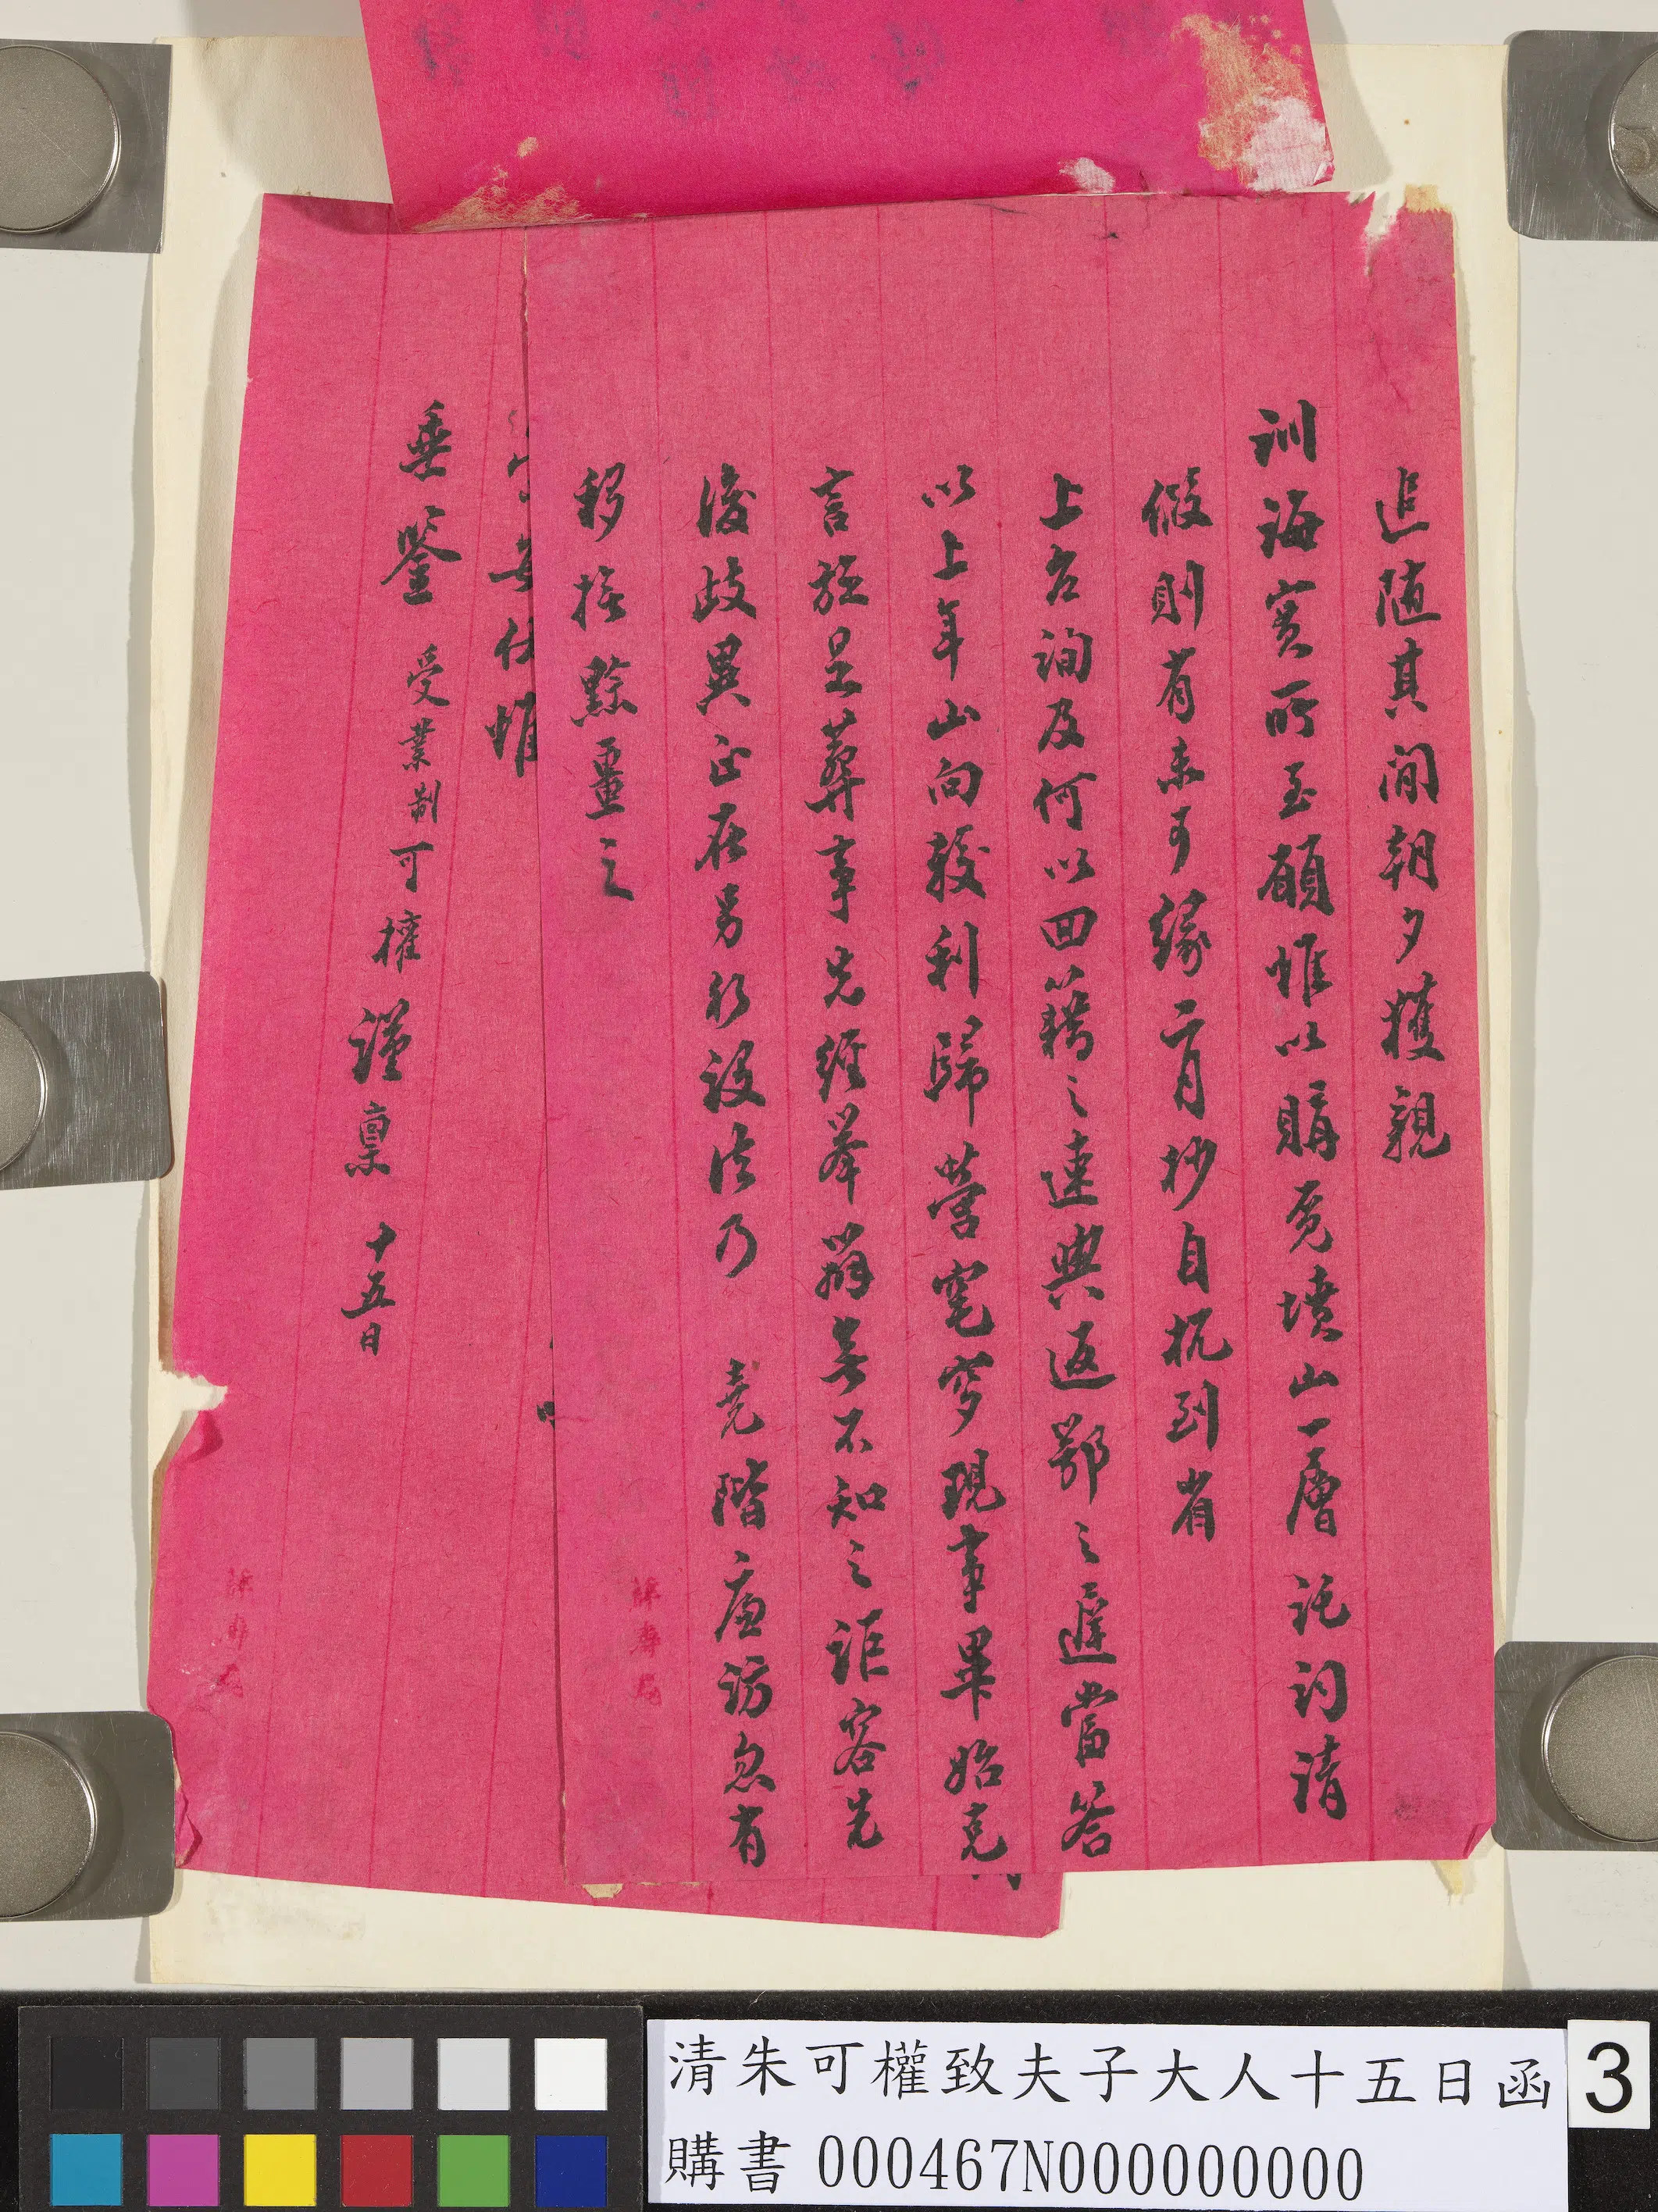 追隨其間朝夕獲親
訓誨實所至願惟以購覓墳山一層託詞請
假則有未可緣二月杪自杭到省
上台詢及何以回籍之速與返鄂之遲當答
以上年山向較利歸營窀穸現事畢始克
言旋是葬事先經舉辦無不知之詎容先
後歧異正在另行設法乃 堯階廉訪忽有
移撫黔畺之
安仕惟
垂鑒 受業制可權謹稟 十五日
清朱可權致夫子大人十五日函
購書 000467N000000000
3